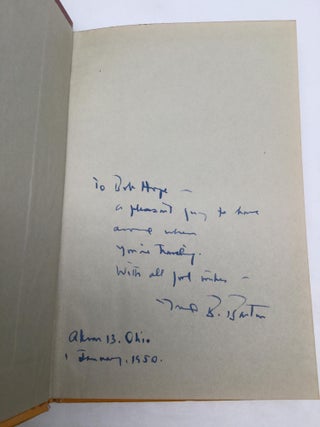 To Bob Hope —
a pleasant guy to have
around when
you're traveling.
With all good wishes —
Fred B. Barton
Akron 13. Ohio
1 January, 1950.